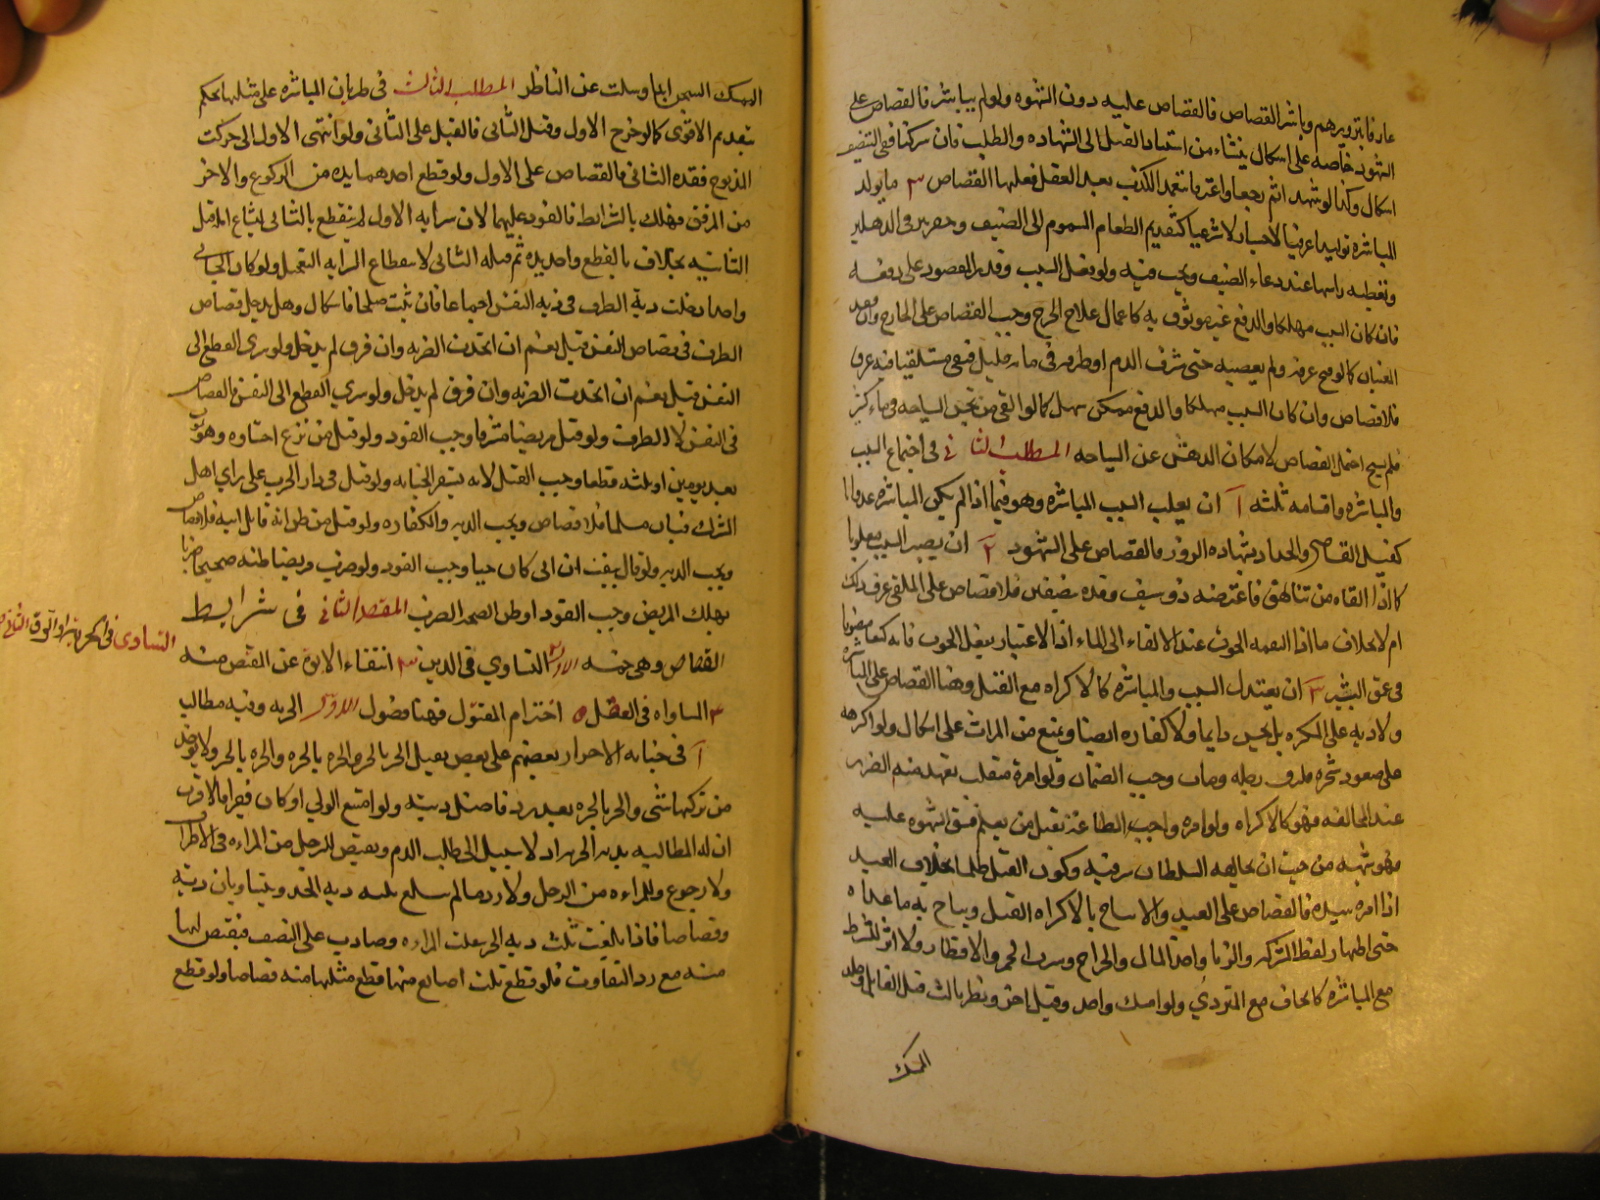 عارفا بتزويرهم وباشر القصاص فالقصاص عليه دون الشهود ولو لم يباشر فالقصاص على
الشهود خاصة على اشكال ينشاء من استناد القتل الى الشهادة والطلب فان شركنا ففي التنصيف
اشكال وكذا لو شهد اثم رجعا واعترفا بتعمد الكذب بعد القتل فعليهما القصاص ٣ ما يولد
المباشرة توليدا عرفيا لا حسيا ولا شرعيا كتقديم الطعام المسموم الى الضيف وحفر بئر في الدهليز
وتغطيه راسها عند دعاء الضيف ويجب فيه ولو فعل السبب وقدر المقصود على دفعه
فان كان السبب مهلكا والدفع غير موثوق به كاهمال علاج الجرح وجب القصاص على الجارح وان فقد
المعنيان كما لو فتح عرقه ولم يعصبه حتى نزف الدم او طرحه في ماء قليل فبقى مستلقيا فيه غرق
فلا قصاص وان كان السبب مهلكا والدفع ممكن سهل كما لو القى من يحسن السباحه في ماء كثير
فلم يسبح احتمل القصاص لامكان الدهش عن السباحه المطلب الثانى في اجتماع السبب
والمباشرة واقسامه ثلثه آ ان يغلب السبب المباشرة وهو فيما اذا لم يكن المباشرة عدوانا
كقتل القاضى والجلاد بشهادة الزور فالقصاص على الشهود ٢ ان يصير السبب مغلوبا
كما اذا القاه من شاهق فاعترضه ذو سيف وقده بنصفين فلا قصاص على الملقى عرف ذلك
ام لا بخلاف ما اذا التقمه الحوت عند الالقاء الى الماء اذ لا اعتبار بفعل الحوت فانه كنصل منصوبا
في عمق البئر ٣ ان يعتدل السبب والمباشرة كالاكراه مع القتل وهنا القصاص على المباشر
ولا دية على المكره بل يحبس دايما ولا كفارة ايضا ويمنع من الميراث على اشكال ولو اكرهه
على صعود شجرة فزلق رجله ومات وجب الضمان ولو امره متغلب يعهد منه الضرر
عند المخالفة فهو كالاكراه ولو امره واجب الطاعة بقتل من يعلم فسق الشهود عليه
فهو شبهه من حيث ان مخالفة السلطان وكون القتل ظلما بخلاف العبد
اذا امره سيده فالقصاص على العبد ولا يباح بالاكراه القتل ويباح به ما عداه
حتى اظهار لفظ الشرك والزنا واخذ المال والجراح وشرب الخمر والافطار ولا اثر للشرط
مع المباشرة كالحافر مع المتردي ولو امسك واحد وقتل اخر ونظر ثالث قتل القاتل وخلد
الممسك
الممسك السجن ابدا وسلت عن الناظر المطلب الثالث في طريان المباشرة على مثلها يحكم
بتقديم الاقوى كما لو جرح الاول وقتل الثانى فالقتل على الثانى ولو انتهى الاول الى حركة
المذبوح فقده الثانى فالقصاص على الاول ولو قطع احدهما يده من الكوع والاخر
من المرفق فهلك بالسراية فالقود عليهما لان سراية الاول لم ينقطع بالثانى لشياع المه قبل
الثانيه بخلاف ما لو قطع واحد يده ثم قتله الثانى لانقطاع السراية بالتعجيل ولو كان الجانى
واحدا دخلت دية الطرف في دية النفس اجماعا فان ثبتت صلحا فاشكال وهل يدخل قصاص
الطرف في قصاص النفس قيل نعم ان اتحدت الضربه وان فرق لم يدخل ولو سرى القطع الى
النفس قيل نعم ان اتحدت الضربه وان فرق لم يدخل ولو سرى القطع الى النفس فالقصاص
في النفس لا الطرف ولو قتل مريضا مشرفا وجب القود ولو قتل من نزع احشاوه وهو يموت
بعد يومين او ثلثه قطعا وجب القتل لانه مستقر الحياة ولو قتل في دار الحرب على راى اهل
الشرك فبان مسلما فلا قصاص ويجب الدية والكفارة ولو قتل من ظن انه قاتل ابيه فلا قصاص
ويجب الدية ولو قال تيقنت ان ابى كان حيا وجب القود ولو ضرب مريضا ظنه صحيحا ضربا
يهلك المريض وجب القود او ظن الصحه الضرب المقصد الثانى في شرايط
القصاص وهي خمسه الاول التساوي في الدين ٣ انتفاء الابوة عن المقتص منه
التساوى في الحرية او الرق الثانى
٤ المساواه في العقل ٥ احترام المقتول فهنا فصول الاول الحرية وفيه مطالب
آ في جناية الاحرار بعضهم على بعض يقتل الحر بالحر والحرة بالحرة والحره بالحر ولا يوخذ
من تركتها شى والحر بالحرة بعد رد فاضل ديته ولو امتنع الولي او كان فقيرا فالاقرب
ان له المطالبه بدية الحره اذ لا سبيل الى طلب الدم ويقتص للرجل من المراة في الاطراف
ولا رجوع وللمراة من الرجل ولا رد ما لم يبلغ ثلث دية الحر ويتساويان دية
وقصاصا فاذا بلغت ثلث دية الحر سفلت المراة وصارت على النصف فيقتص لها
منه مع رد التفاوت فلو قطع ثلث اصابع منها قطع مثلها منه قصاصا ولو قطع